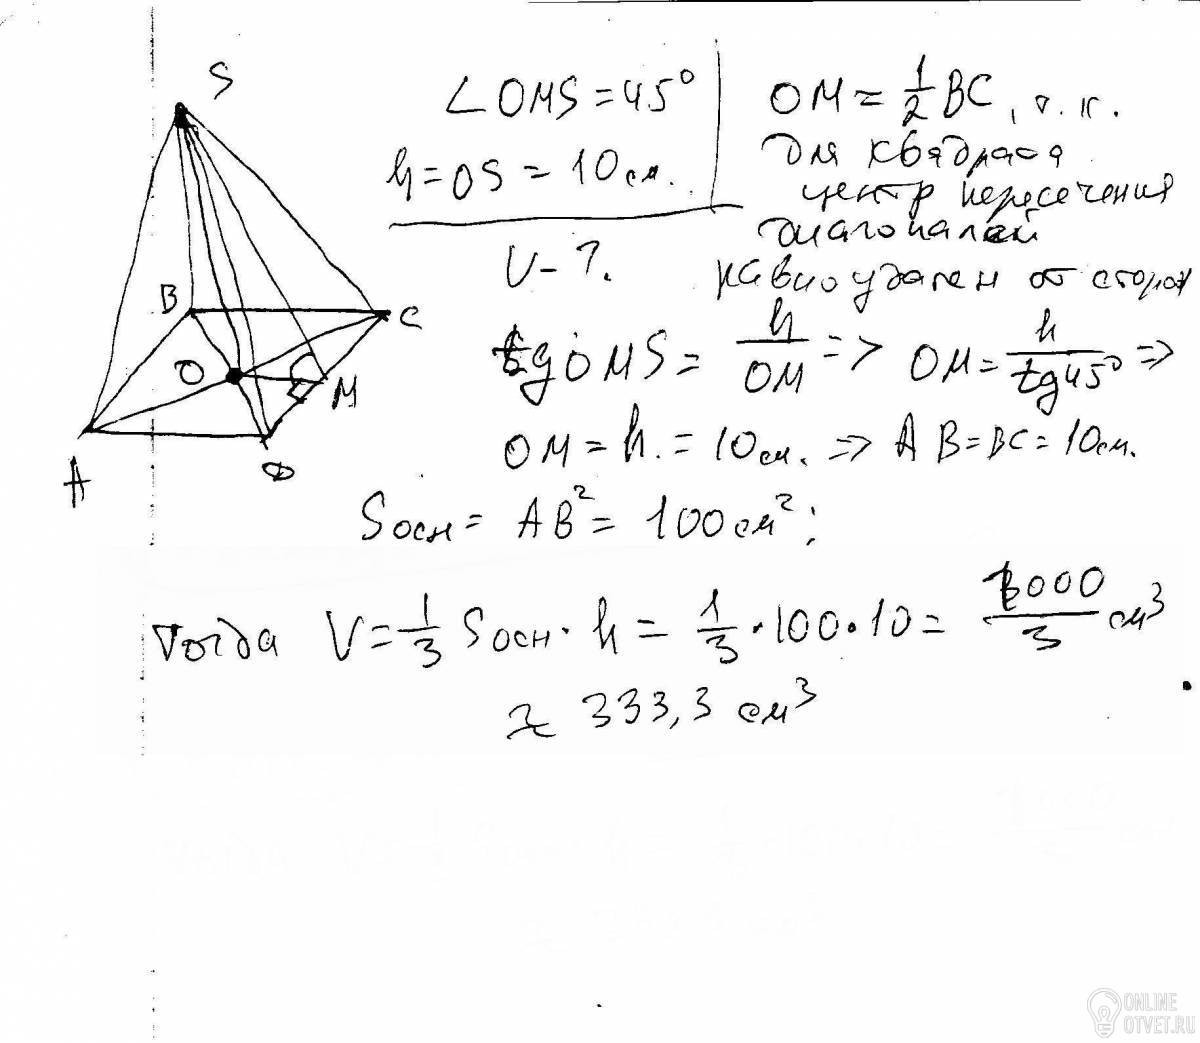 S
B
C
O
M
A
D
∠OMS = 45°
h = OS = 10 см.
V - ?
OM = 1/2 BC, т.к.
для квадрата
центр пересечения
диагоналей
равноудален от сторон
tg OMS = h/OM => OM = h/tg45° =>
OM = h. = 10 см. => AB = BC = 10 см.
Sосн = AB² = 100 см²;
Тогда V = 1/3 Sосн · h = 1/3 · 100 · 10 = 1000/3 см³
≈ 333,3 см³
ONLINE
OTVET.RU